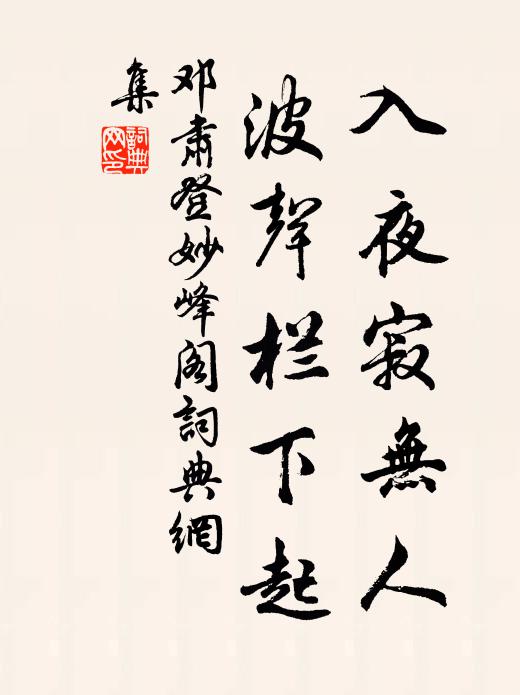 入夜寂無人
波聲栏下起
邓肅登妙峰阁詞典網
集
詞典
网印